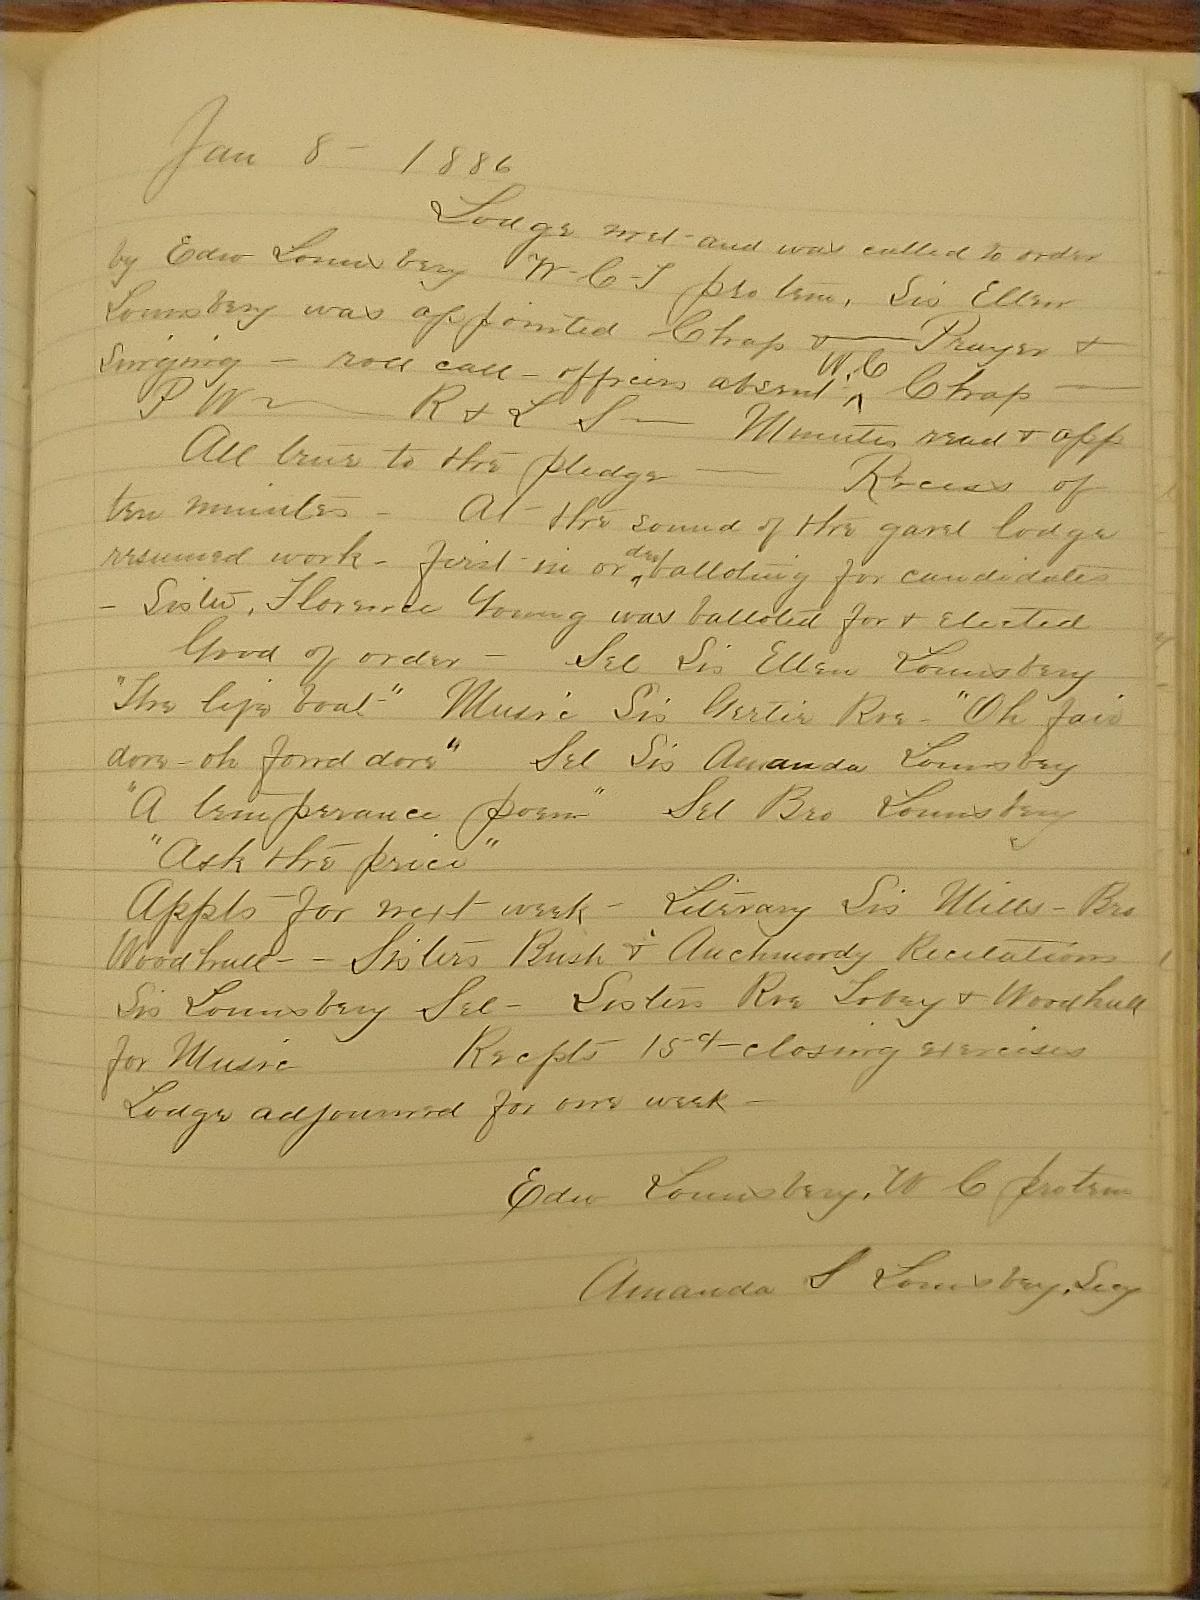 Jan 8 - 1886
Lodge met - and was called to order
by Edw Lounsbery W-C-T pro tem. Sis Ellen
Lounsbery was appointed Chap & — Prayer &
Singing - roll call - officers absent - W.C Chap —
P W — R & L S — Minutes read & app
All true to the pledge — Recess of
ten minutes - At the sound of the gavel lodge
resumed work - first in order balloting for candidates
- Sister, Florence Young was balloted for & elected
Good of order - Sel Sis Ellen Lounsbery
"The life boat" Music Sis Gertie Roe - "Oh fair
dove - oh fond dove" Sel Sis Amanda Lounsbey
"A temperance poem" Sel Bro Lounsbery
"Ask the price"
Appts for next week - Literary Sis Mills - Bro
Woodhull - - Sisters Bush & Auchmordy Recitations
Sis Lounsbery Sel - Sisters Roe Lobey & Woodhull
for Music Recpts 15 ct - closing exercises
Lodge adjourned for one week -
Edw Lounsbery, W C protem
Amanda S Lounsbery, Secy